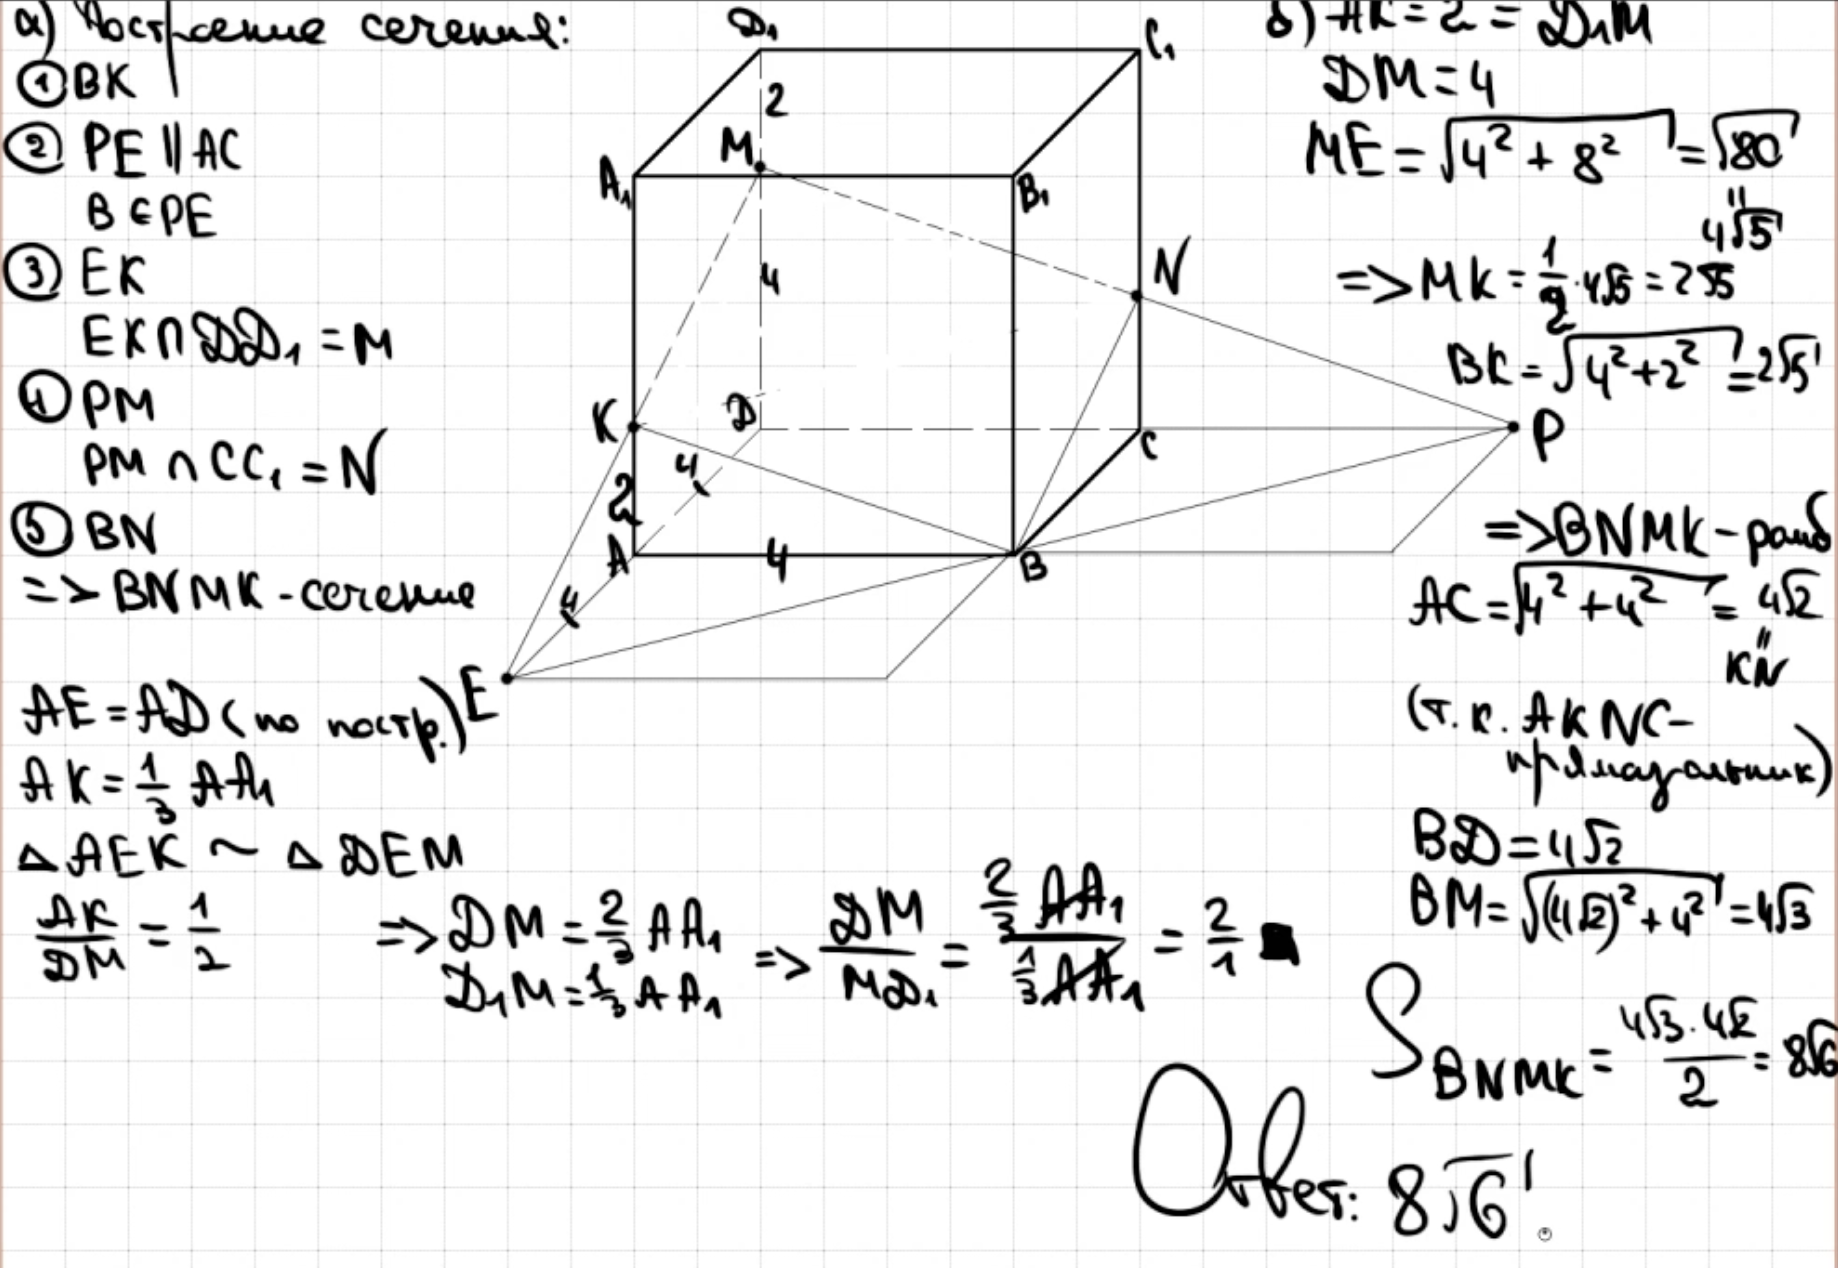 а) Построение сечения:
① BK
② PE || AC
B ∈ PE
③ EK
EK ∩ DD₁ = M
④ PM
PM ∩ CC₁ = N
⑤ BN
=> BNMK - сечение
AE = AD (по постр.)
AK = 1/3 AA₁
△AEK ~ △DEM
AK/DM = 1/2 => DM = 2/3 AA₁
D₁M = 1/3 AA₁
=> DM/MD₁ = (2/3 AA₁)/(1/3 AA₁) = 2/1 ■
D₁
C₁
2
M
A₁
B₁
N
4
K
D
C
P
4
2
A
4
B
4
E
б) AK = 2 = D₁M
DM = 4
ME = √(4² + 8²) = √80
"
4√5
=> MK = 1/2 · 4√5 = 2√5
BK = √(4² + 2²) = 2√5
=> BNMK - ромб
AC = √(4² + 4²) = 4√2
"
KN
(т.к. AKNC -
прямоугольник)
BD = 4√2
BM = √((4√2)² + 4²) = 4√3
S BNMK = (4√3 · 4√2)/2 = 8√6
Ответ: 8√6.